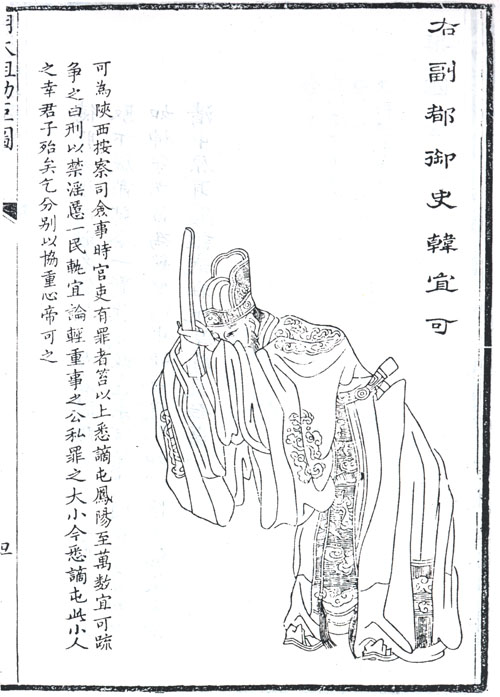 右副都御史韓宜可
可為陝西按察司僉事時官吏有罪者笞以上悉謫屯鳳陽至萬數宜可疏
爭之曰刑以禁淫慝一民軌宜論輕重事之公私罪之大小今悉謫屯此小人
之幸君子殆矣乞分別以協重心帝可之